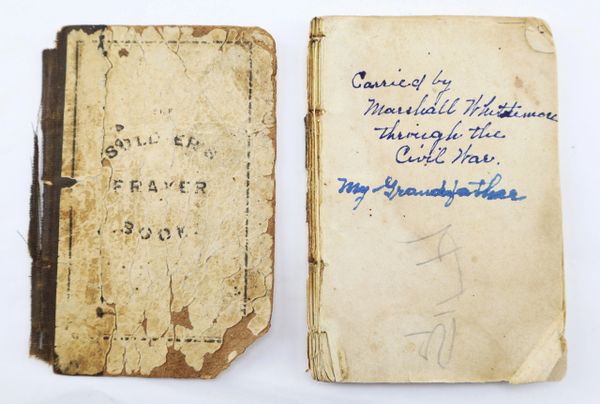 THE
SOLDIER'S
PRAYER
BOOK.
Carried by
Marshall Whittemore
through the
Civil War.
My Grandfather